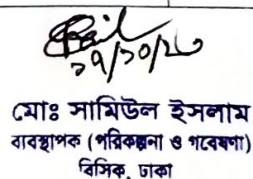 ১৭/১০/২০
মোঃ সামিউল ইসলাম
ব্যবস্থাপক (পরিকল্পনা ও গবেষণা)
বিসিক, ঢাকা